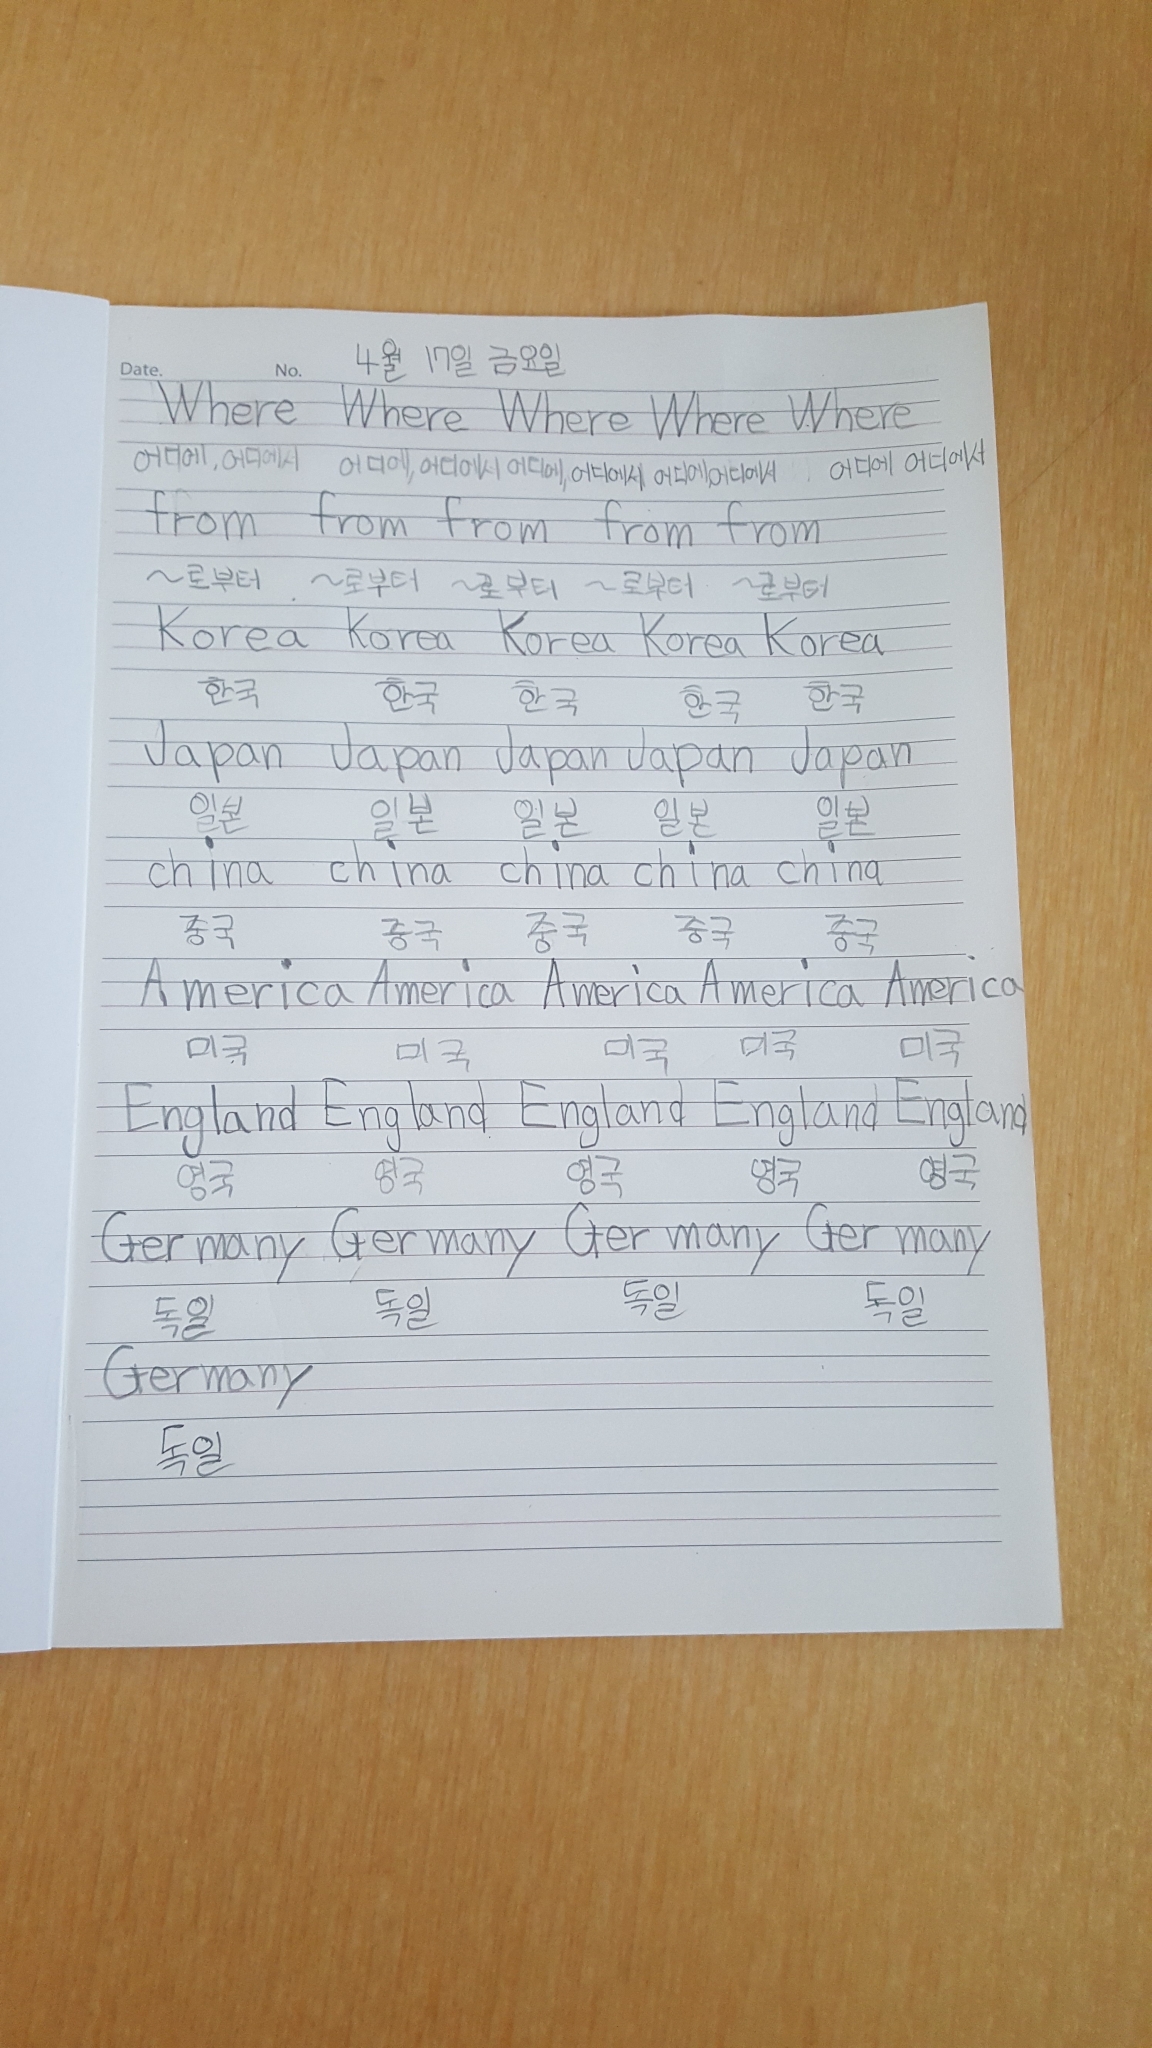 Date. No. 4월 17일 금요일
Where Where Where Where Where
어디에, 어디에서 어디에, 어디에서 어디에, 어디에서 어디에,어디에서 어디에 어디에서
from from from from from
~로부터 ~로부터 ~로부터 ~로부터 ~로부터
Korea Korea Korea Korea Korea
한국 한국 한국 한국 한국
Japan Japan Japan Japan Japan
일본 일본 일본 일본 일본
china china china china china
중국 중국 중국 중국 중국
America America America America America
미국 미국 미국 미국 미국
England England England England England
영국 영국 영국 영국 영국
Germany Germany Germany Germany
독일 독일 독일 독일
Germany
독일